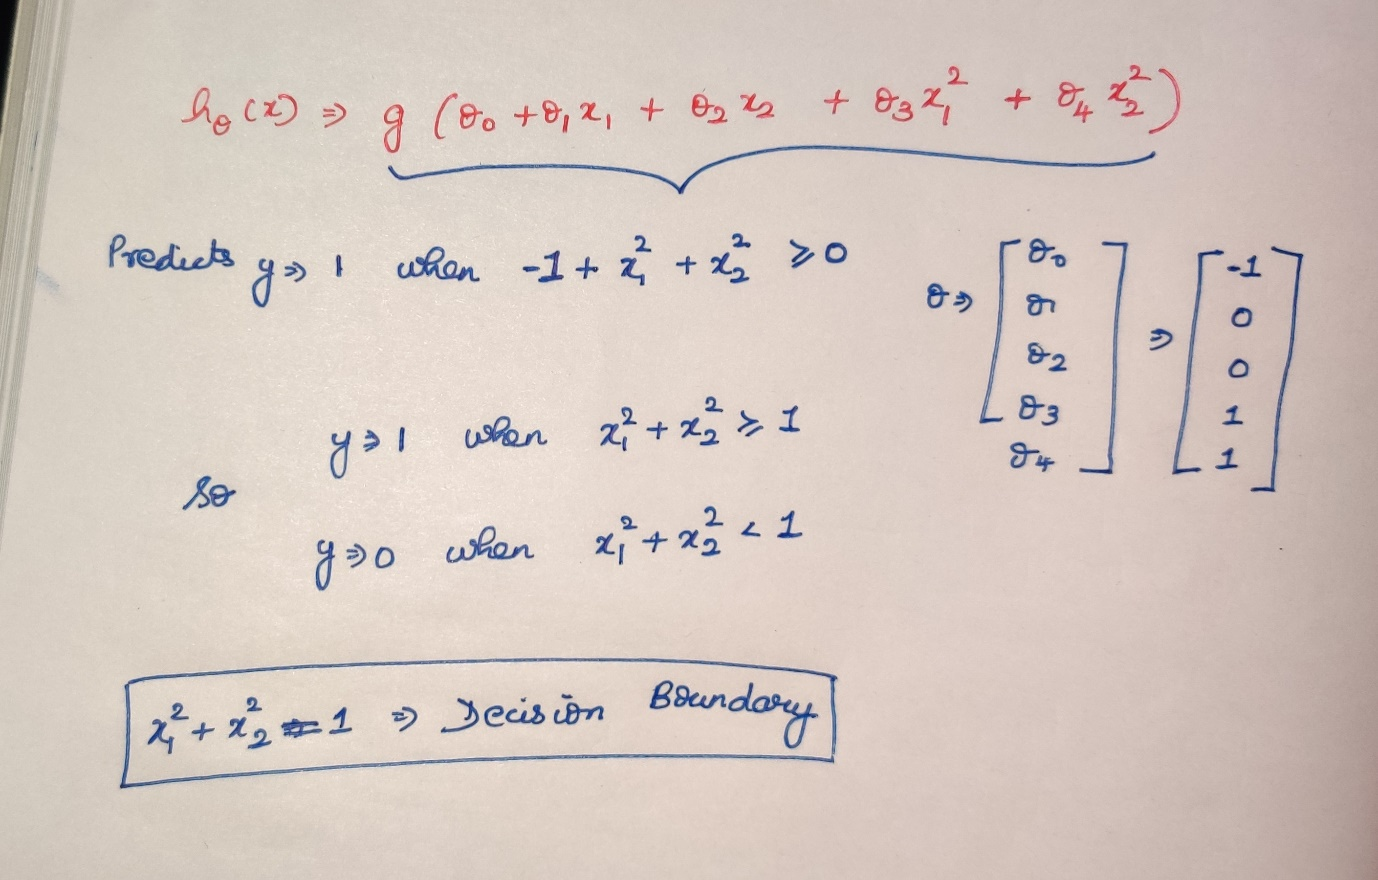 h_θ(x) ⇒ g(θ₀ + θ₁x₁ + θ₂x₂ + θ₃x₁² + θ₄x₂²)
Predicts y ⇒ 1 when -1 + x₁² + x₂² ⩾ 0
θ ⇒ [θ₀ θ₁ θ₂ θ₃ θ₄] ⇒ [-1 0 0 1 1]
y ⇒ 1 when x₁² + x₂² ⩾ 1
So
y ⇒ 0 when x₁² + x₂² < 1
x₁² + x₂² = 1 ⇒ Decision Boundary